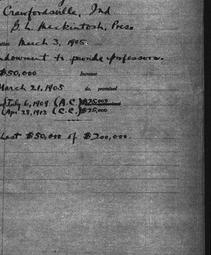 Crawfordsville, Ind
G. L. Mackintosh, Pres.
March 3, 1905.
ndowment to provide professors.
$50,000 Increase
March 21, 1905 do. promised
July 6, 1909 (A.C.) $25,000
(Apr 28, 1913 (C.C.) $25,000
Last $50,000 of $200,000.